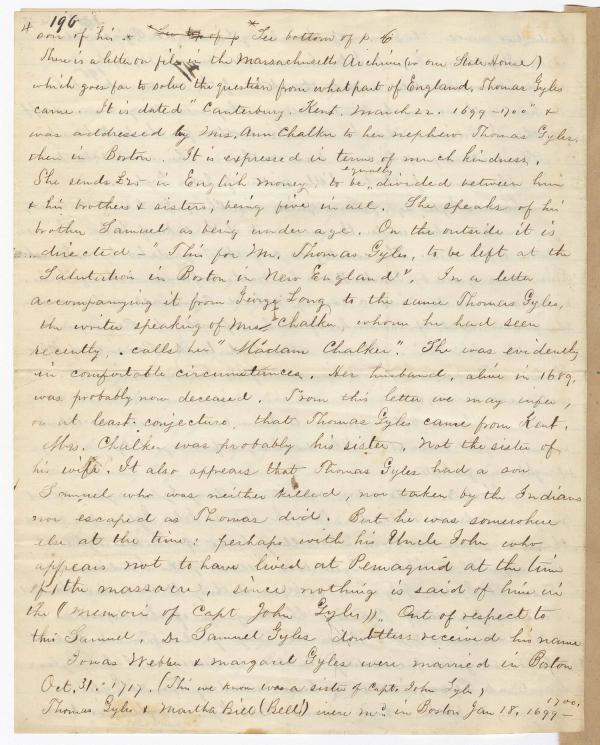 196
son of his. * See bottom of p. 6
There is a letter on file in the Massachusetts Archives (in our State House)
which goes far to solve the question from what part of England, Thomas Gyles
came. It is dated "Canterbury. Kent. March 22. 1699-1700" &
was addressed by Mrs. Ann Chalker to her nephew Thomas Gyles,
then in Boston. It is expressed in terms of much kindness.
She sends £25 in English money, to be equally divided between him
& his brothers & sisters, being five in all. She speaks of his
brother Samuel as being under age. On the outside it is
directed - "This for Mr. Thomas Gyles, to be left at the
Salutation in Boston in New England". In a letter
accompanying it from George Long to the same Thomas Gyles,
the writer speaking of Mrs. Chalker, whom he had seen
recently, calls her "Madam Chalker". She was evidently
in comfortable circumstances. Her husband, alive in 1689,
was probably now deceased. From this letter we may infer,
or at least conjecture, that Thomas Gyles came from Kent.
Mrs. Chalker was probably his sister, not the sister of
his wife. It also appears that Thomas Gyles had a son
Samuel who was neither killed, nor taken by the Indians
nor escaped as Thomas did. But he was somewhere
else at the time: perhaps with his Uncle John who
appears not to have lived at Pemaquid at the time
of the massacre, since nothing is said of him in
the (memoir of Capt John Gyles)). Out of respect to
this Samuel, Dr Samuel Gyles doubtless received his name
Jonas Webber & Margaret Gyles were married in Boston
Oct. 31. 1717. (This we know was a sister of Capt. John Gyles)
Thomas Gyles & Martha Bill (Bell?) were md. in Boston Jan 18, 1699-1700.